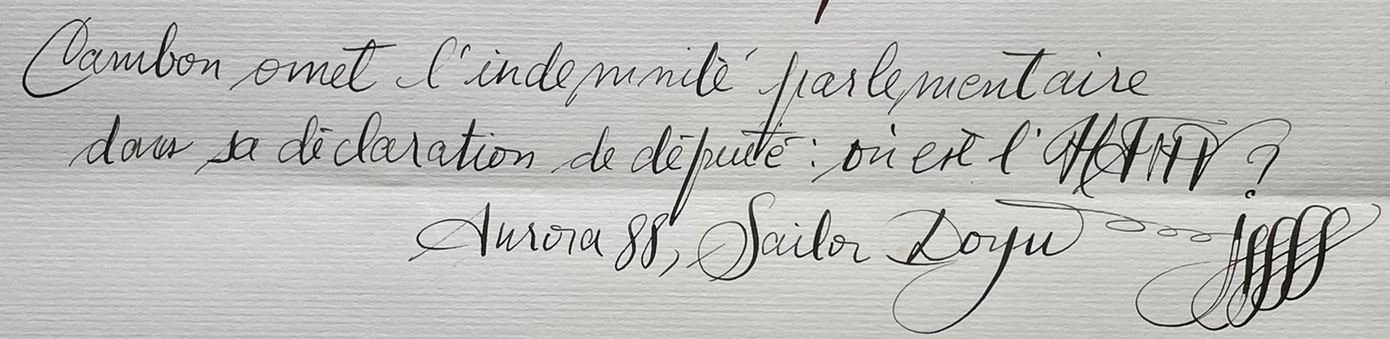 Cambon omet l'indemnité parlementaire
dans sa déclaration de député : où est l'HATVP ?
Aurora 88, Sailor Doyu